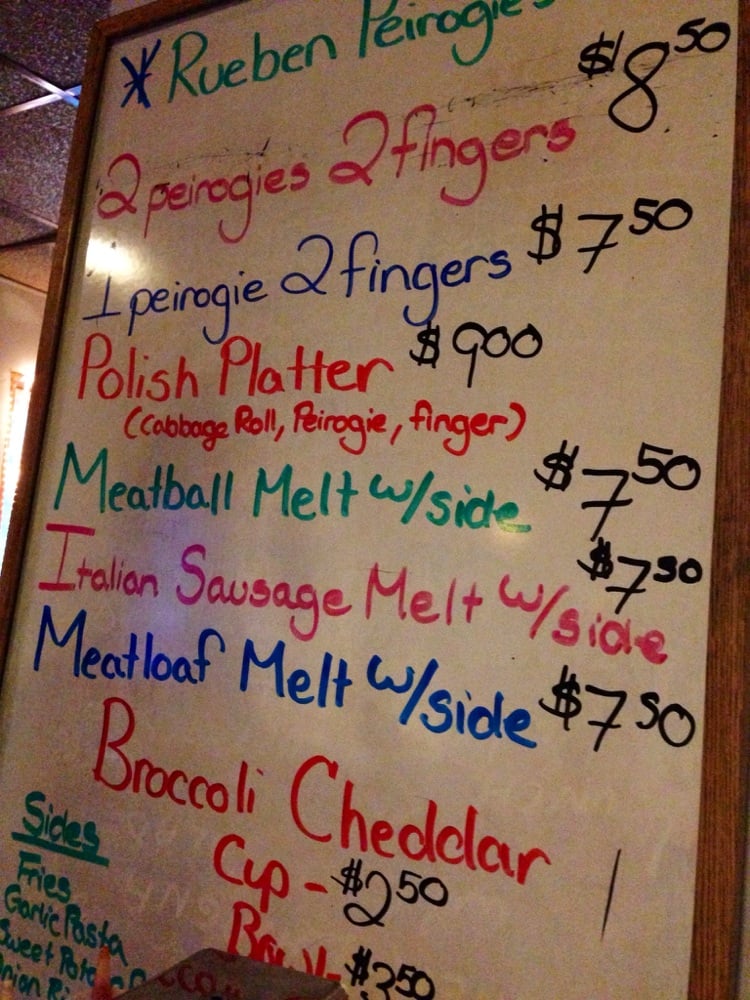 *Rueben Peirogies
2 peirogies 2 fingers $8.50
1 peirogie 2 fingers $7.50
Polish Platter $9.00
(Cabbage Roll, Peirogie, finger)
Meatball Melt w/side $7.50
Italian Sausage Melt w/side $7.50
Meatloaf Melt w/side $7.50
Broccoli Cheddar
Cup - $2.50
Bowl - $3.50
Sides
Fries
Garlic Pasta
Sweet Potato
Onion